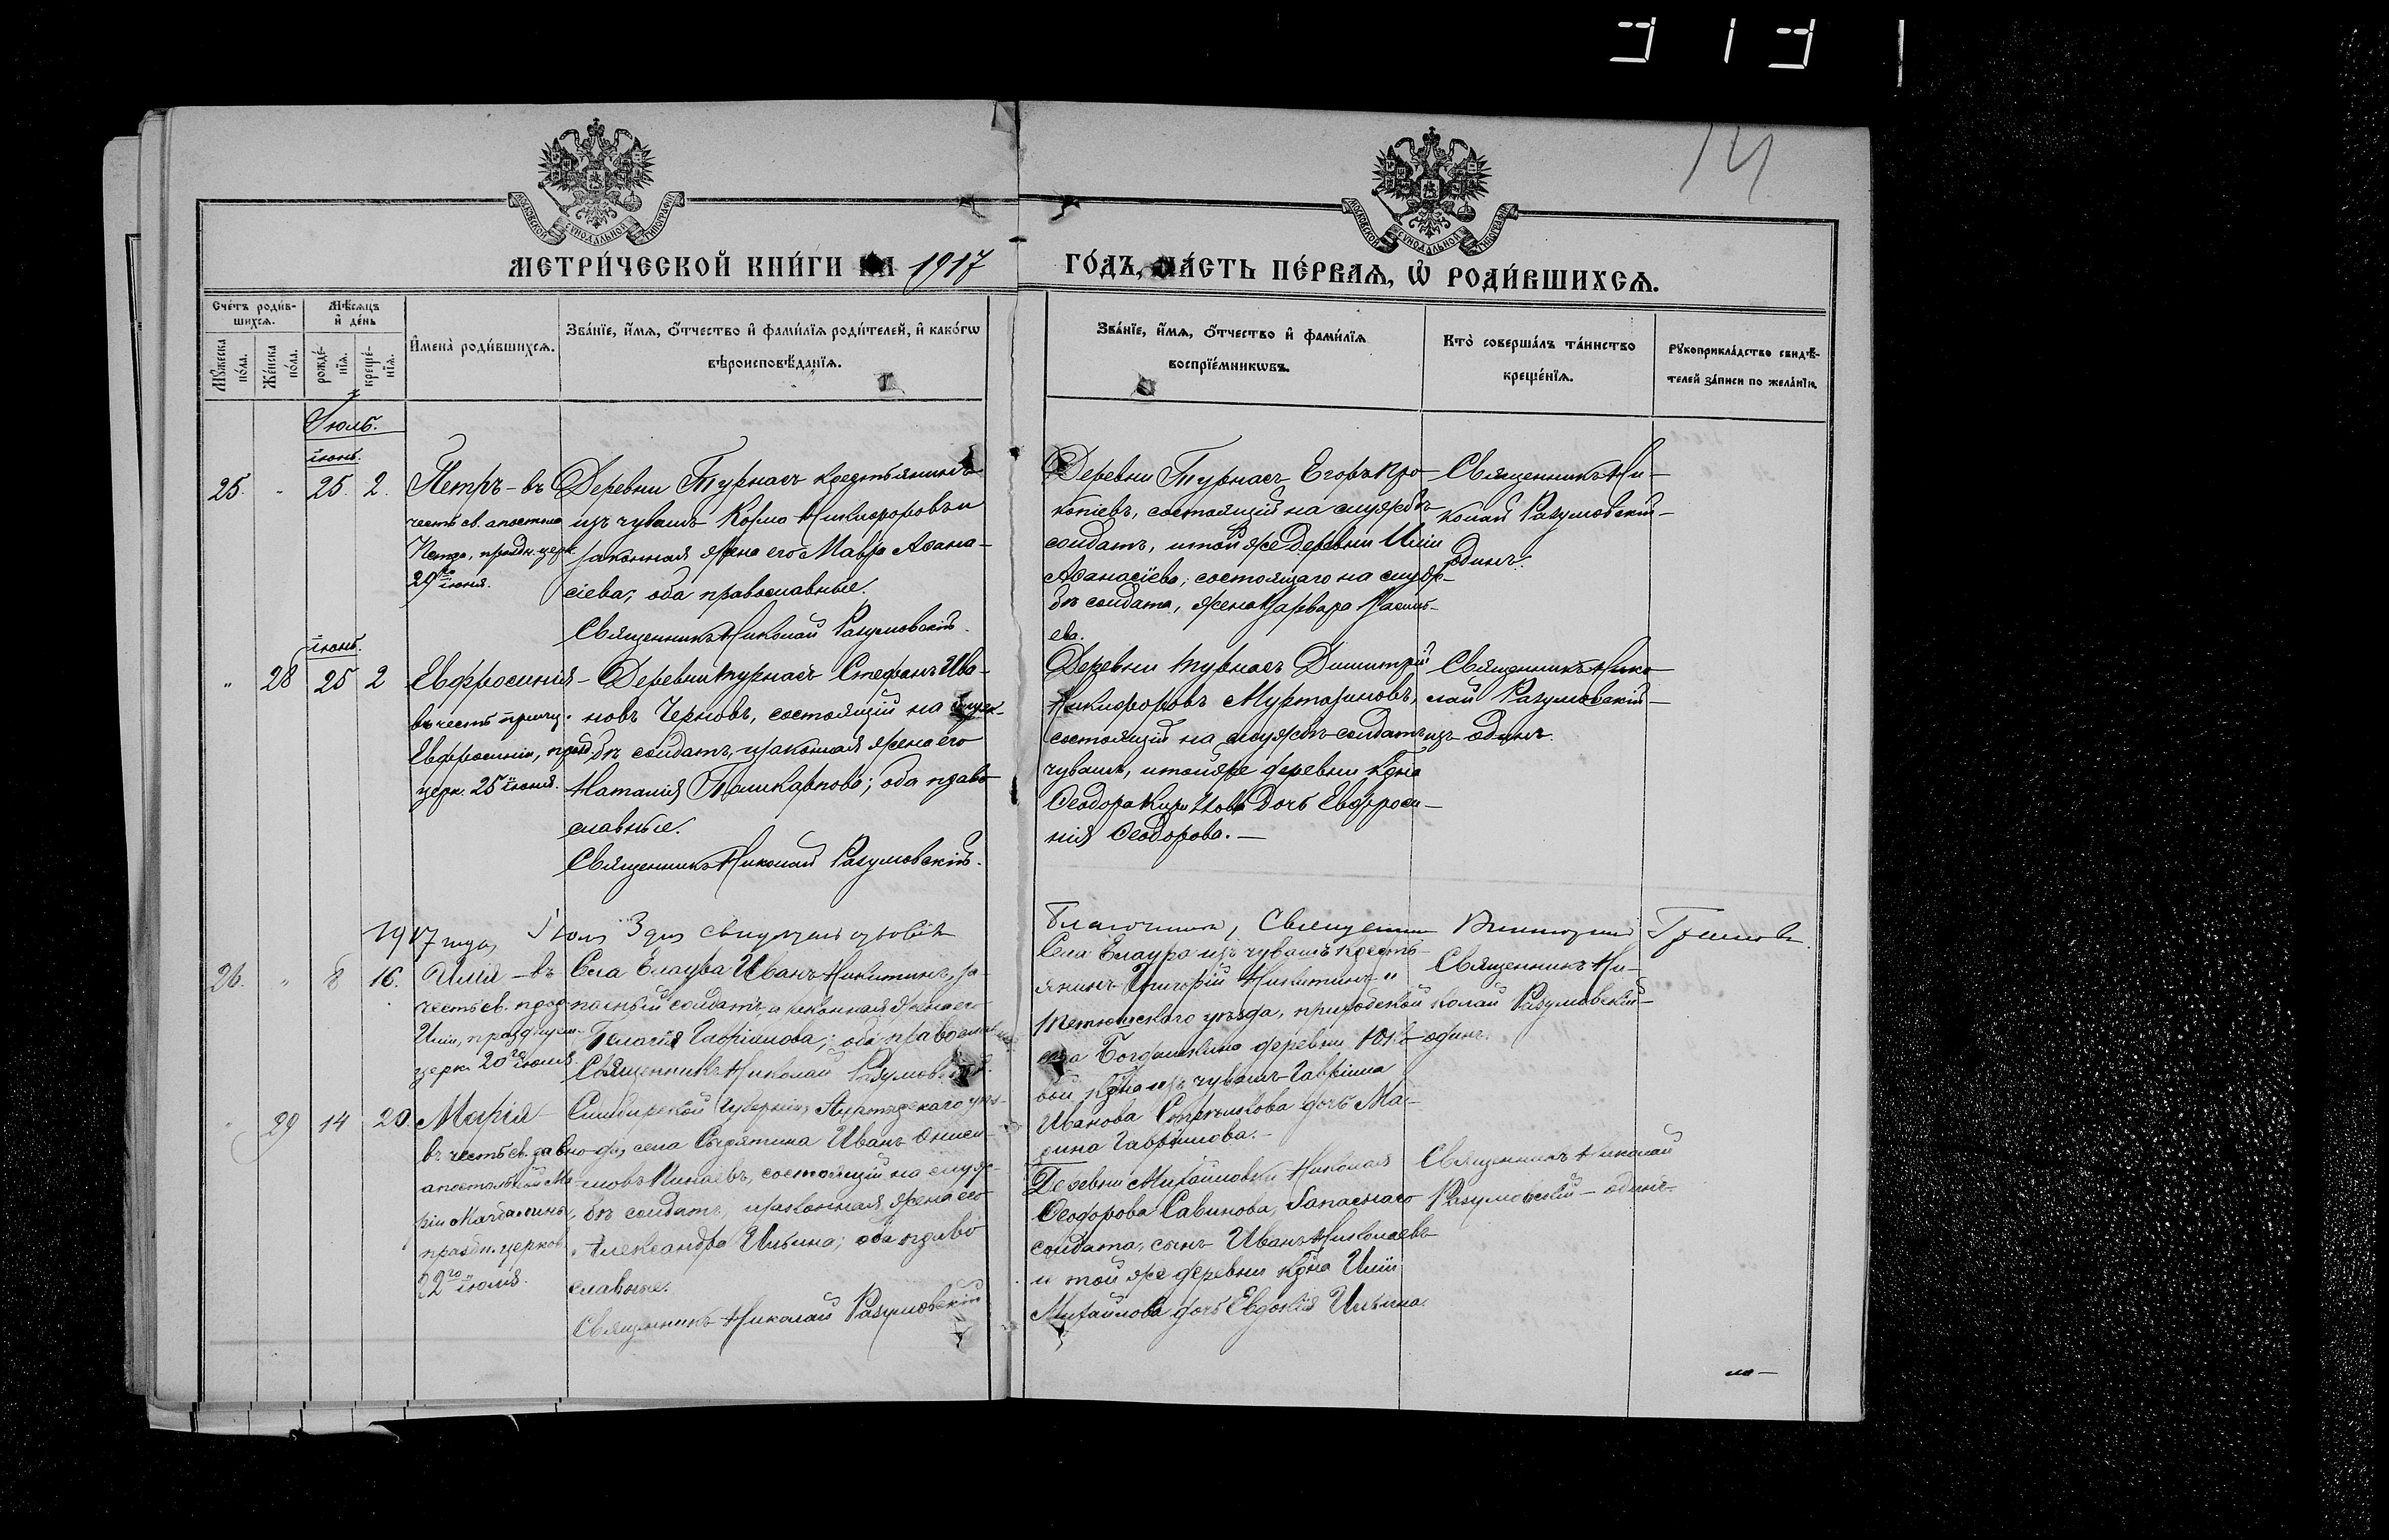 3 1 3
14
МОСКОВСКОЙ СѴНОДАЛЬНОЙ ТИПОГРАФІИ
МОСКОВСКОЙ СѴНОДАЛЬНОЙ ТИПОГРАФІИ
МЕТРИ́ЧЕСКОЙ КНИ́ГИ НА 1917
ГО́ДЪ, ЧА́СТЬ ПЕ́РВАѦ, Ѡ҆ РОДИ́ВШИХСѦ.
Сче́тъ роди́в-
шихсѧ.
Мѣ́сѧцъ
и҆ де́нь
Мꙋ́жеска по́ла.
Же́нска по́ла.
рожде́-нїѧ.
креще́-нїѧ.
И҆мена̀ роди́вшихсѧ.
Зва́нїе, и҆́мѧ, ѻ҆́тчество и҆ фами́лїѧ роди́телей, и҆ како́гѡ
вѣроисповѣ́данїѧ.
Зва́нїе, и҆́мѧ, ѻ҆́тчество и҆ фами́лїѧ
воспрїе́мникѡвъ.
Кто̀ соверша́лъ та́инство
креще́нїѧ.
Рꙋкоприкла́дство свидѣ́-
телей за́писи по жела́нїю.
Іюль.
іюнь.
25. " 25. 2.
Петръ - въ
честь св. апостола
Петра, праздн. церк.
29го іюня.
Деревни Турнасъ крестьянинъ
изъ чувашъ Козма Никифоровъ и
законная жена его Мавра Аѳана-
сіева; оба православные.
Священникъ Николай Разумовскій.
Деревни Турнасъ Егоръ Про-
копіевъ, состоящій на службѣ
солдатъ, и той же деревни Иліи
Аѳанасіева, состоящаго на служ-
бѣ солдата, жена Варвара Василь-
ева.
Священникъ Ни-
колай Разумовскій -
одинъ.
іюнь.
" 28 25 2
Евфросинія -
въ честь
Евфросиніи, празд.
церк. 25 іюня.
Деревни Турнасъ Стефанъ Ива-
новъ Черновъ, состоящій на служ-
бѣ солдатъ, и законная жена его
Наталія Поликарпова; оба право-
славные.
Священникъ Николай Разумовскій.
Деревни Турнасъ Димитрій
Никифоровъ
состоящій на службѣ солдатъ изъ
чувашъ, и той же деревни кр-на
Ѳеодора дочь Евфроси-
нія Ѳеодорова. -
Священникъ Нико-
лай Разумовскій -
одинъ.
1917 года, Іюля 3 дня
Благочинный, Священникъ
26. " 8 16.
Илія - въ
честь св. прор.
Иліи, празднуем.
церк. 20го іюля.
Села Елаура Иванъ Никитинъ, за-
пасный солдатъ, и законная жена его
Пелагія Гавріилова; оба православные.
Священникъ Николай Разумовскій.
Села Елаура изъ чувашъ кресть-
янинъ Григорій Никитинъ и
Тетюшскаго уѣзда, приходской
села Богдашкина деревни
вой кр-на изъ чувашъ Гавріила
Иванова дочь Ма-
рина Гавріилова. -
Священникъ Ни-
колай Разумовскій -
одинъ.
" 29 14 20.
Марія -
въ честь св. равно-
апостольной Ма-
ріи Магдалины,
праздн. церков.
22го іюля.
Симбирской губерніи, Алатырскаго уѣз-
да, села Сырятина Иванъ
состоящій на служ-
бѣ солдатъ, и законная жена его
Александра Ильина; оба право-
славные.
Священникъ Николай Разумовскій
Деревни Михайловки Николая
Ѳеодорова Савинова, запаснаго
солдата, сынъ Иванъ Николаевъ
и той же деревни кр-на Иліи
Михайлова дочь Евдокія Ильина.
Священникъ Николай
Разумовскій - одинъ.